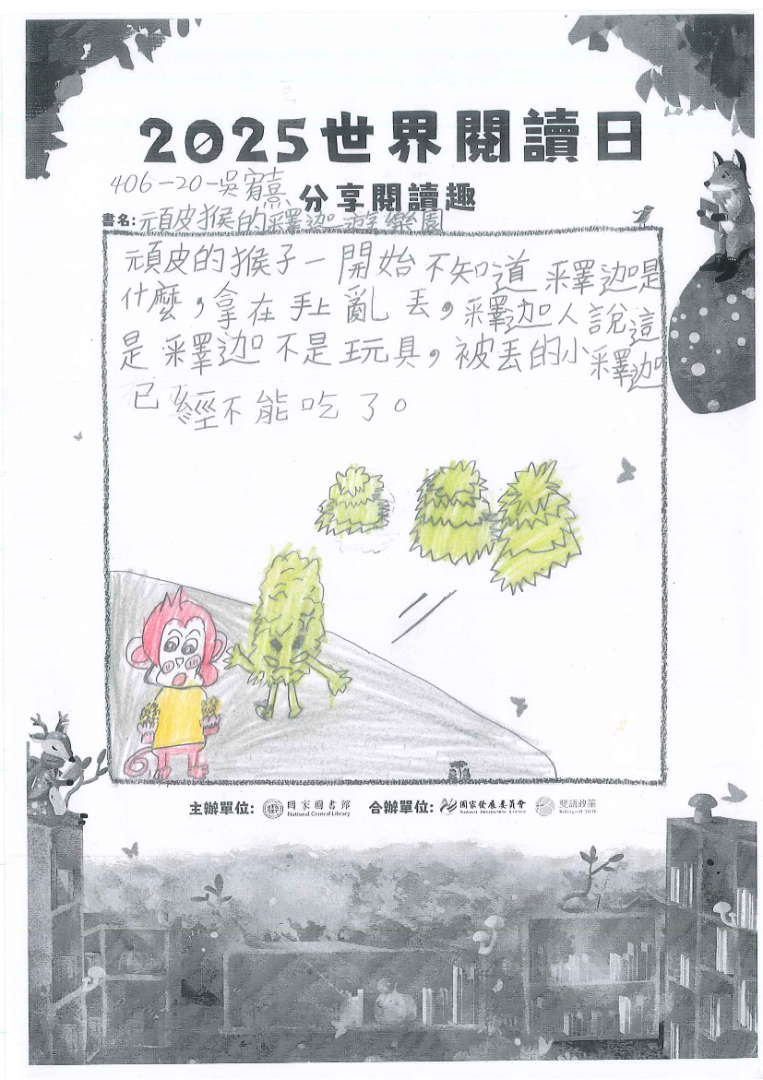 2025世界閱讀日
406-20-吳宥熹
分享閱讀趣
書名:頑皮猴的釋迦遊樂園
頑皮的猴子一開始不知道釋迦是
什麼，拿在手上亂丟，釋迦人說這
是釋迦不是玩具，被丟的小釋迦
已經不能吃了。
主辦單位: 國家圖書館 National Central Library 合辦單位: 國家發展委員會 National Development Council 雙語政策